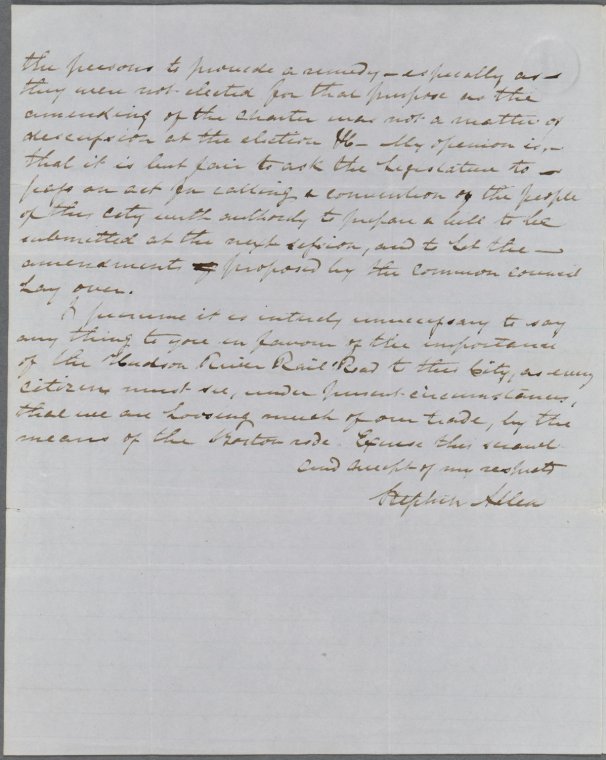 the persons to provide a remedy — especially as —
they were not elected for that purpose as the
amending of the Charter was not a matter of
discussion at the election &c — My opinion is, —
that it is but fair to ask the Legislature to —
pass an act for calling a convention of the people
of this City with authority to prepare a bill to be
submitted at the next session, and to let the —
amendments proposed by the Common Council
Lay over.
I presume it is intirely unnecessary to say
any thing to you in favour of the importance
of the Hudson River Rail Road to this City, as every
Citizen must see, under present circumstances,
that we are loosing much of our trade, by the
means of the Boston rode. Excuse this
and accept of my respects
Stephen Allen